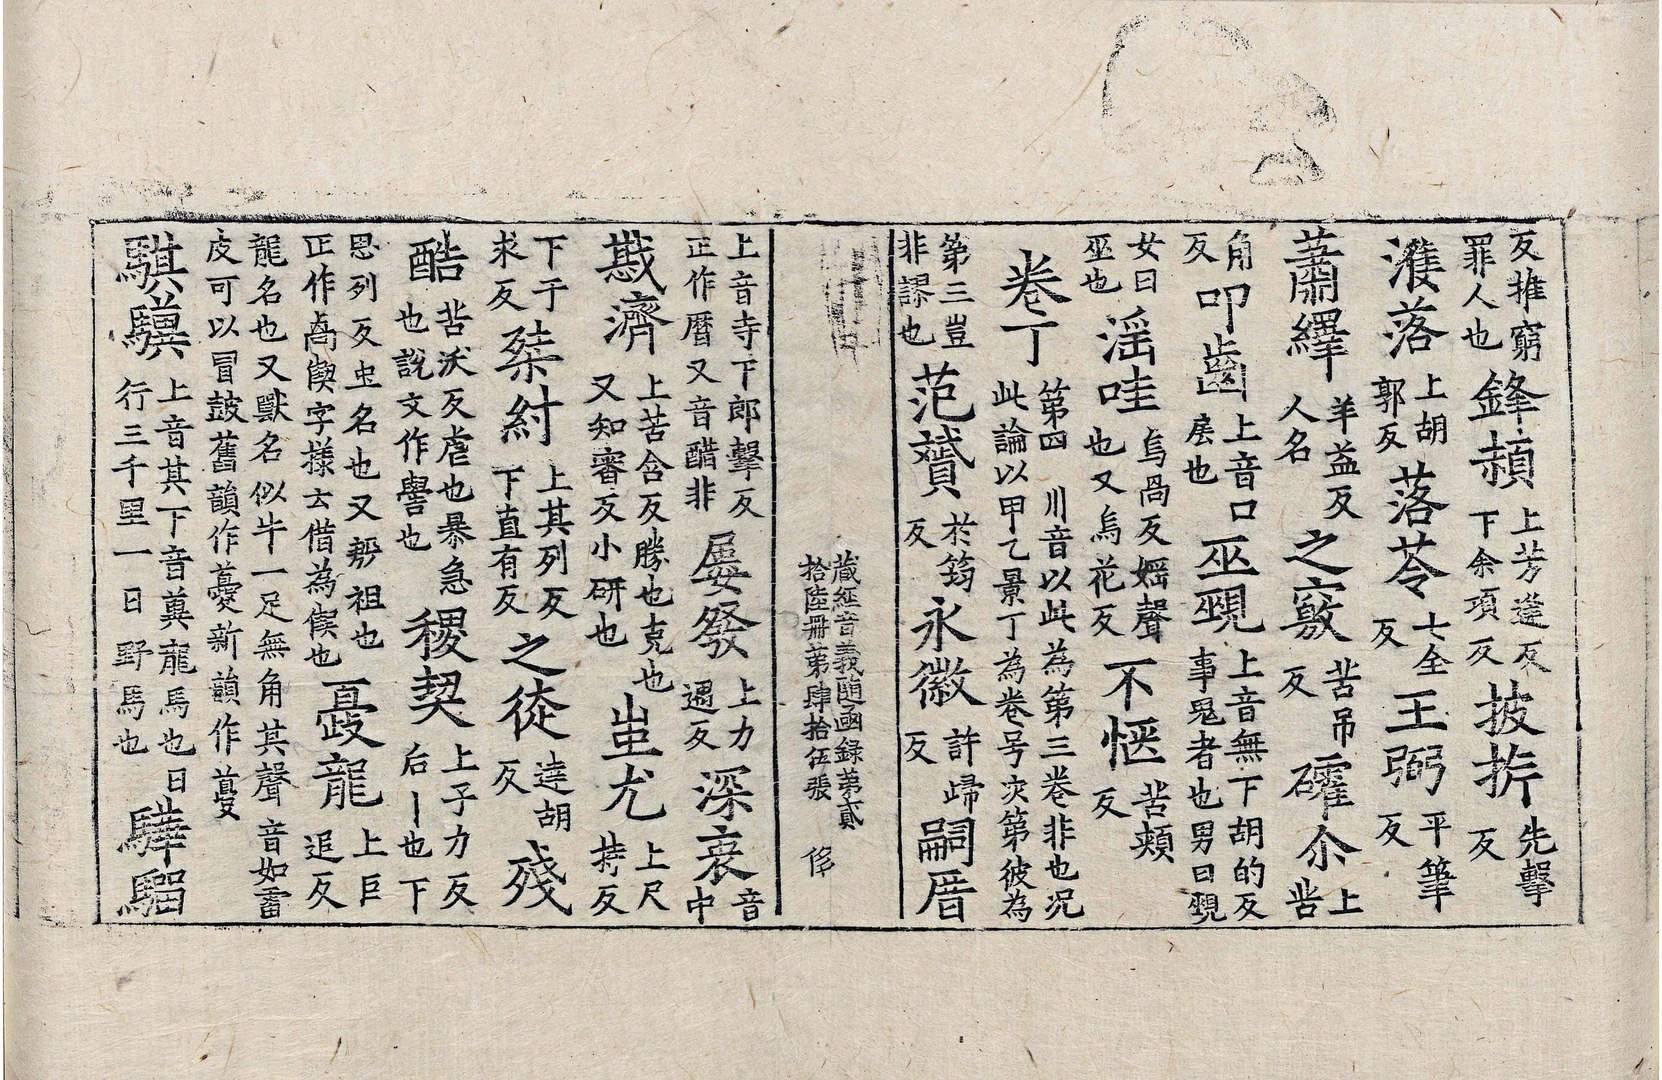 反推窮罪人也鋒䫙上芳逢反下余項反披㧊先擊反
濩落上胡郭反落苓七全反王弼平筆反
蕭繹羊益反人名之竅苦吊反礭尒上苦
角反叩齒上音口㞐也巫覡上音無下胡的反事鬼者也男曰覡
女曰巫也淫哇烏咼反婬聲也又烏花反不愜苦頰反
卷丁第四川音以此為第三卷非也況此論以甲乙景丁為卷号次第彼為
第三豈非謬也范贇於筠反永徽許歸反嗣厝
藏經音義隨函錄第貳拾陸冊第肆拾伍張
上音寺下郎擊反正作曆又音醋非屢發上力遇反深衷音中
戡濟上苦含反勝也克也又知審反小研也蚩尤上尺持反
下于求反桀紂上其列反下直有反之徒達胡反殘
酷苦沃反虐也暴急也說文作嚳也稷契上子力反后丨也下
思列反虫名也又㔟祖也正作卨偰字樣云借為偰也夔龍上巨追反
龍名也又獸名似牛一足無角其聲音如雷皮可以冒鼓舊韻作夔新韻作䕫
騏驥上音其下音冀龍馬也日行三千里一日野馬也驊騮